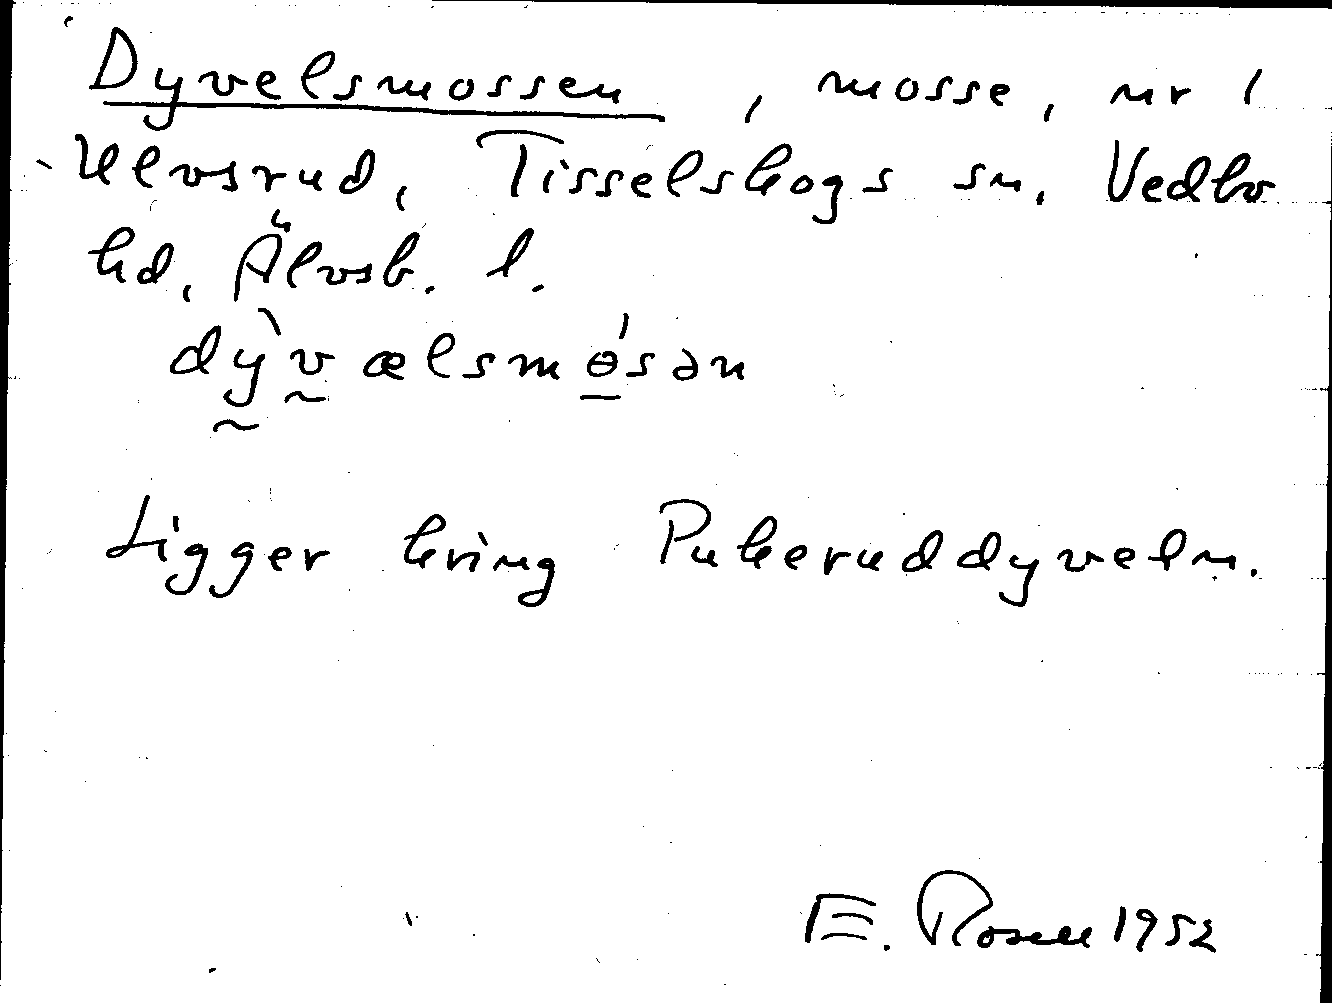 Dyvelsmossen, mosse, nr 1
Ulvsrud, Tisselskogs sn, Vedbo
hd, Älvsb. l.
dỳvælsmɵ́sən
Ligger kring Pukeruddyveln.
E. Rosell 1952